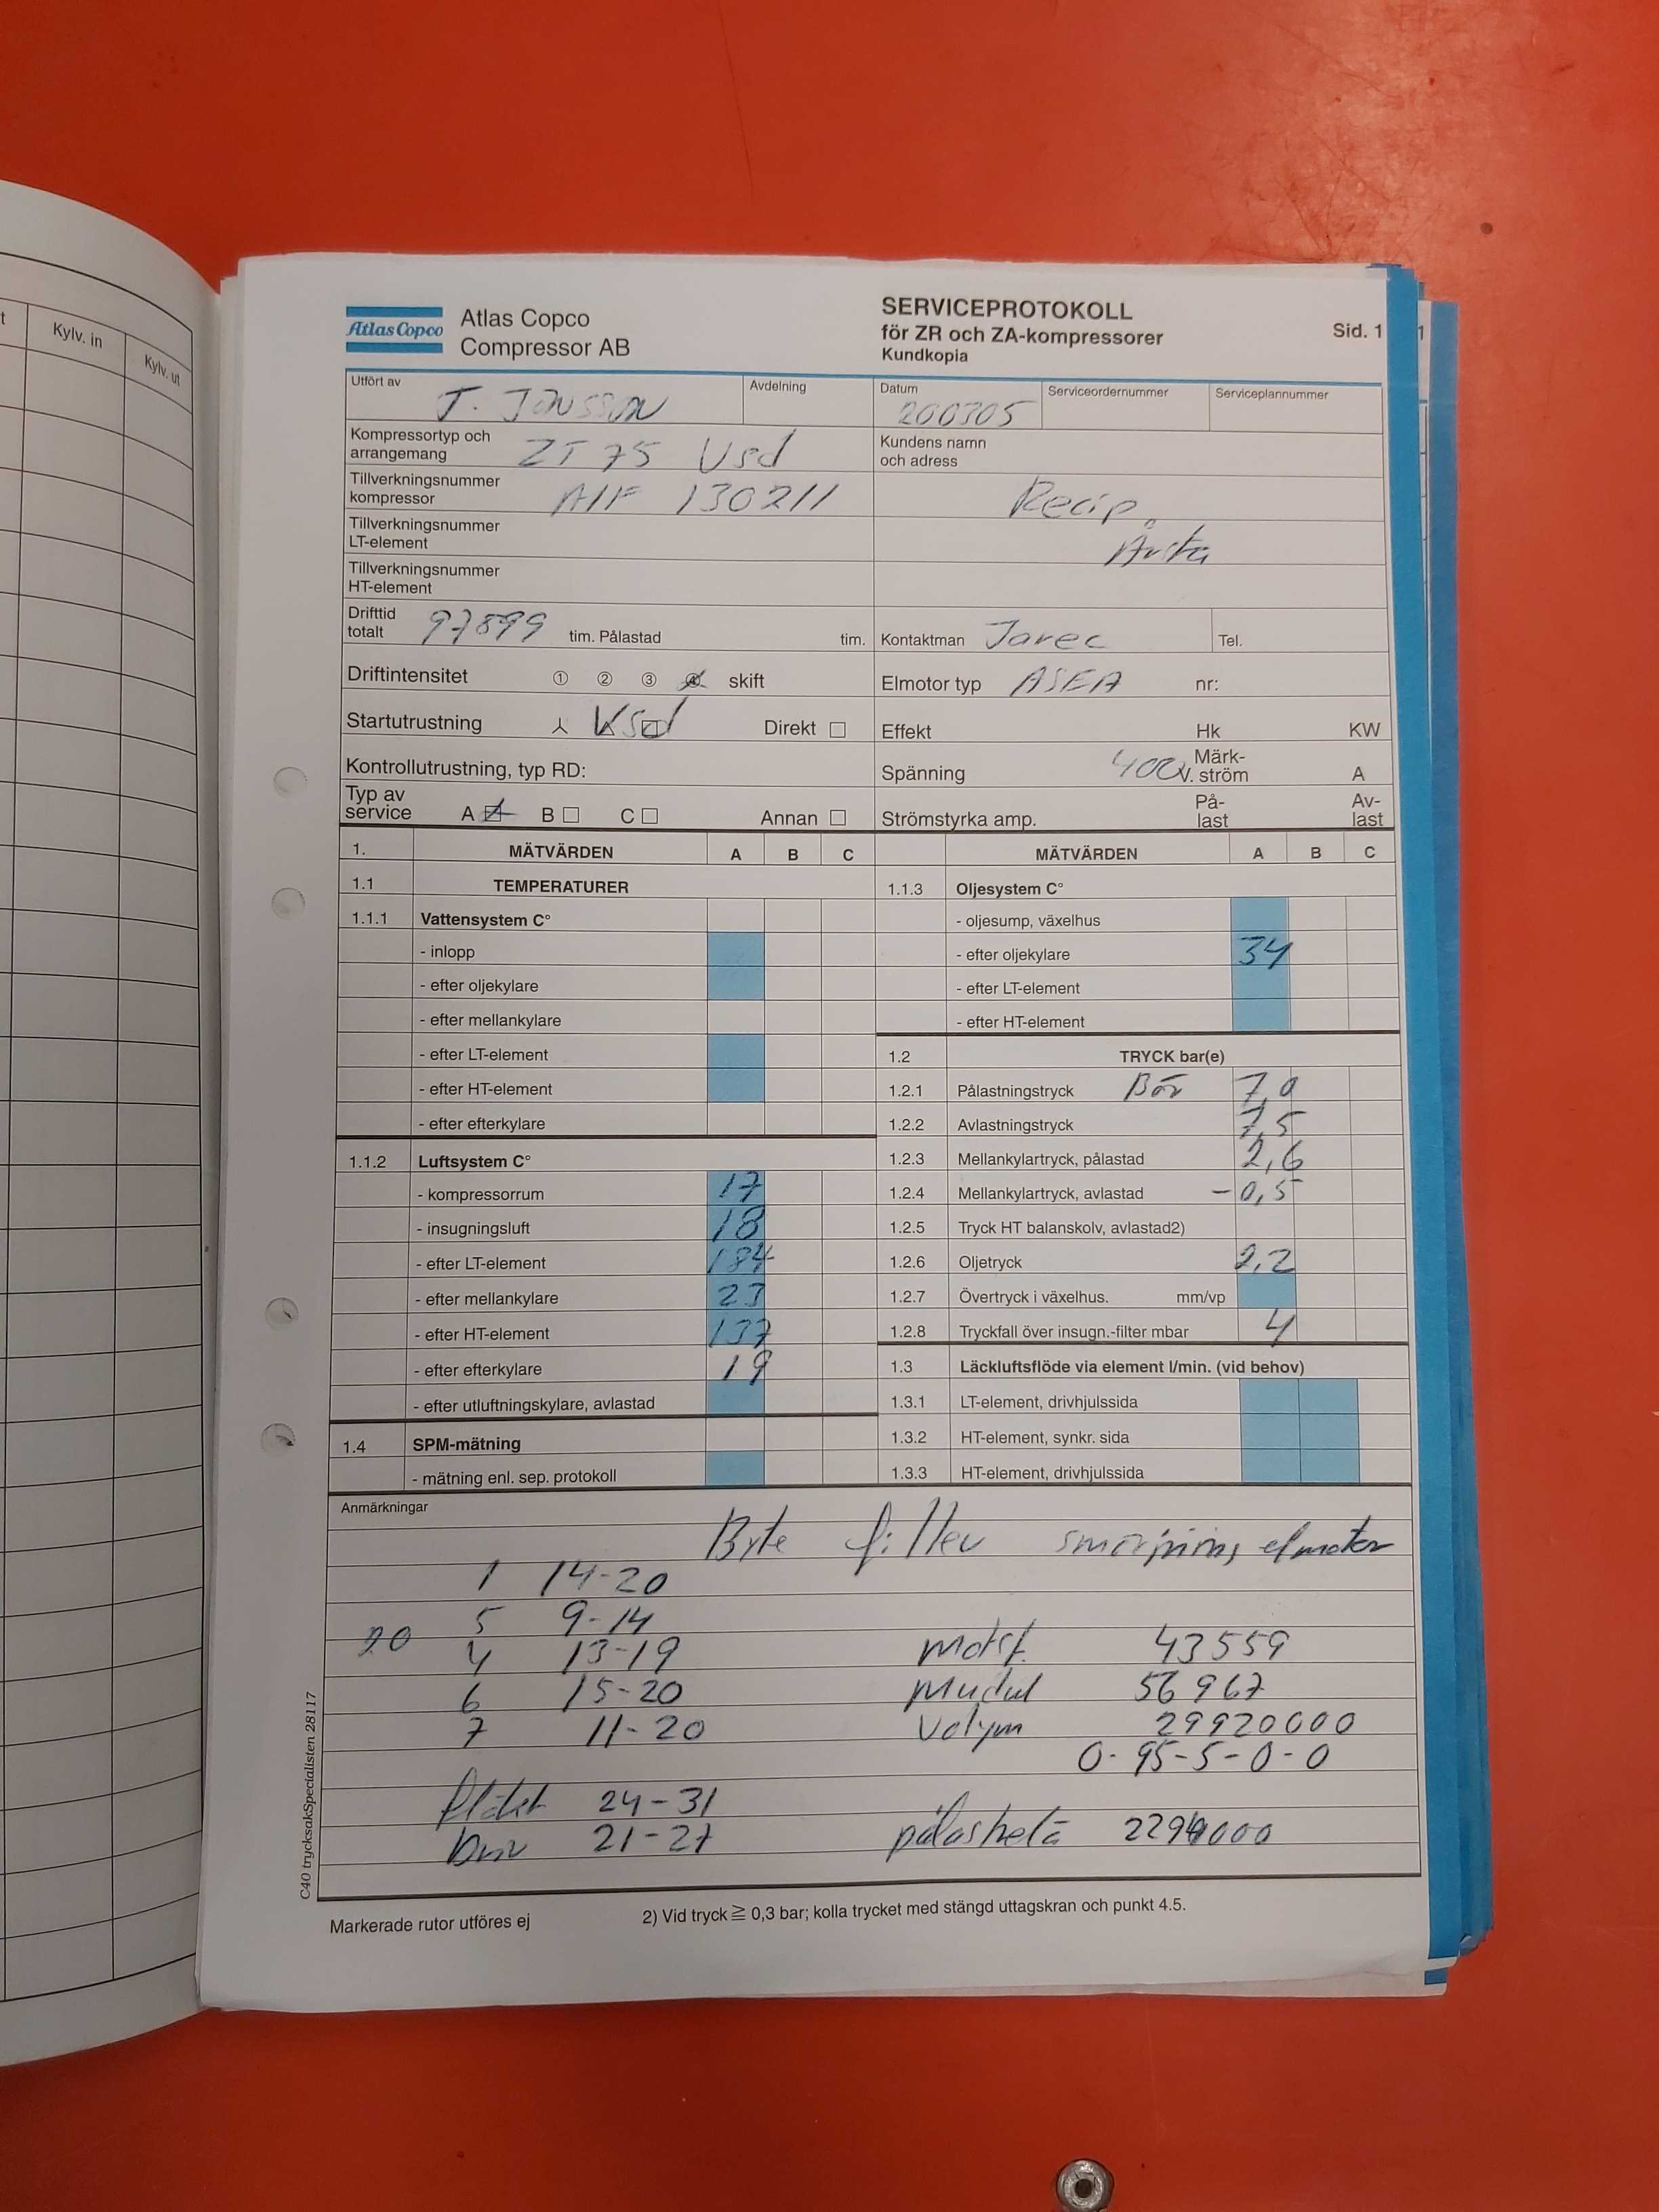 t
Kylv. in
Kylv. ut
Atlas Copco
Atlas Copco
Compressor AB
SERVICEPROTOKOLL
för ZR och ZA-kompressorer
Kundkopia
Sid. 1
1
Utfört av
J. Jonsson
Avdelning
Datum
200305
Serviceordernummer
Serviceplannummer
Kompressortyp och
arrangemang
ZT 75 Vsd
Kundens namn
och adress
Tillverkningsnummer
kompressor
AIF 130211
Recip.
Årsta
Tillverkningsnummer
LT-element
Tillverkningsnummer
HT-element
Drifttid
totalt
97899
tim. Pålastad
tim.
Kontaktman
Jarec
Tel.
Driftintensitet
① ② ③ ④ skift
Elmotor typ ASEA nr:
Startutrustning
Vsd
Direkt
Effekt Hk KW
Kontrollutrustning, typ RD:
Spänning 400 V. Märk-
ström A
Typ av
service
A B C Annan
Strömstyrka amp. På-
last Av-
last
1. MÄTVÄRDEN A B C
MÄTVÄRDEN A B C
1.1 TEMPERATURER
1.1.1 Vattensystem C°
- inlopp
- efter oljekylare
- efter mellankylare
- efter LT-element
- efter HT-element
- efter efterkylare
1.1.2 Luftsystem C°
- kompressorrum 17
- insugningsluft 18
- efter LT-element 184
- efter mellankylare 23
- efter HT-element 137
- efter efterkylare 19
- efter utluftningskylare, avlastad
1.4 SPM-mätning
- mätning enl. sep. protokoll
1.1.3 Oljesystem C°
- oljesump, växelhus
- efter oljekylare 34
- efter LT-element
- efter HT-element
1.2 TRYCK bar(e)
1.2.1 Pålastningstryck Bör 7,0
1.2.2 Avlastningstryck 7,5
1.2.3 Mellankylartryck, pålastad 2,6
1.2.4 Mellankylartryck, avlastad -0,5
1.2.5 Tryck HT balanskolv, avlastad2)
1.2.6 Oljetryck 2,2
1.2.7 Övertryck i växelhus. mm/vp
1.2.8 Tryckfall över insugn.-filter mbar 4
1.3 Läckluftsflöde via element l/min. (vid behov)
1.3.1 LT-element, drivhjulssida
1.3.2 HT-element, synkr. sida
1.3.3 HT-element, drivhjulssida
Anmärkningar
Byte filter smörjning elmotor
1 14-20
5 9-14
20 4 13-19
motst. 43559
6 15-20
Modul 56967
7 11-20
Volym 29920000
0-95-5-0-0
fläkt 24-31
Driv 21-27
C40 trycksakSpecialisten 28117
Markerade rutor utföres ej
2) Vid tryck ≧ 0,3 bar; kolla trycket med stängd uttagskran och punkt 4.5.